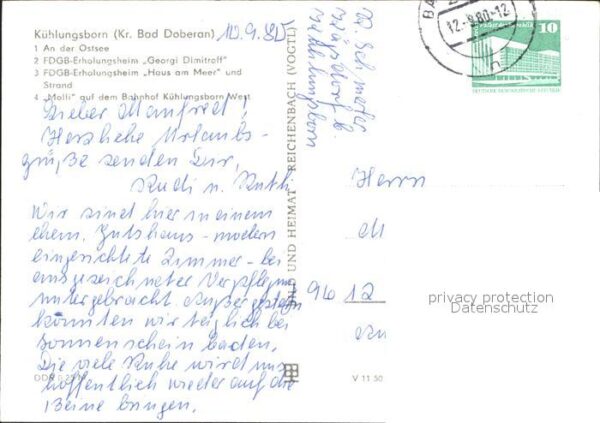 Kühlungsborn (Kr. Bad Doberan) 10.9.80
1 An der Ostsee
2 FDGB-Erholungsheim „Georgi Dimitroff"
3 FDGB-Erholungsheim „Haus am Meer" und
Strand
4 „Molli" auf dem Bahnhof Kühlungsborn West
Lieber Manfred!
Herzliche Urlaubs-
grüße senden Euer,
Rudi u. Ruth
Wir sind hier in einem
ehem. Gutshaus - modern
eingerichtete Zimmer - bei
ausgezeichneter Verpflegung
untergebracht. Außer gestern
konnten wir täglich bei
Sonnenschein baden.
Die viele Ruhe wird uns
hoffentlich wieder auf die
Beine bringen.
BILD UND HEIMAT REICHENBACH (VOGTL)
Kühlungsborn
12.-9.80-12
10
Herrn
M
9612
V 11 50
privacy protection
Datenschutz